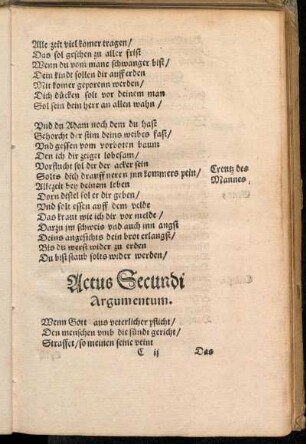 Alle zeit viel komer tragen/
Das sol geschen zu aller frist
Wenn du vom mane schwanger bist/
Dein kindt sollen dir auff erden
Mit komer geporenn werden/
Dich dücken solt vor deinem man
Sol sein dein herr an allen wahn/
Vnd du Adam noch dem du hast
Gehorcht der stim deins weibes fast/
Vnd gessen vom vorboten baum
Den ich dir zeiget lobesam/
Vorflucht sol dir der acker sein
Solts dich drauff neren jnn kommers pein/
Creutz des
Mannes,
Allezeit bey deinem leben
Dorn distel sol er dir geben/
Vnd solt essen auff dem velde
Das kraut wie ich dir vor melde/
Darzu jm schweis vnd auch jnn angst
Deins angesichts dein brot erlangst/
Bis du werst wider zu erden
Du bist staub solts wider werden/
Actus Secundi
Argumentum.
Wenn Gott aus veterlicher pflicht/
Den menschen vmb die sündt gericht/
Straffet/ so meinen seine veint
C ij
Das